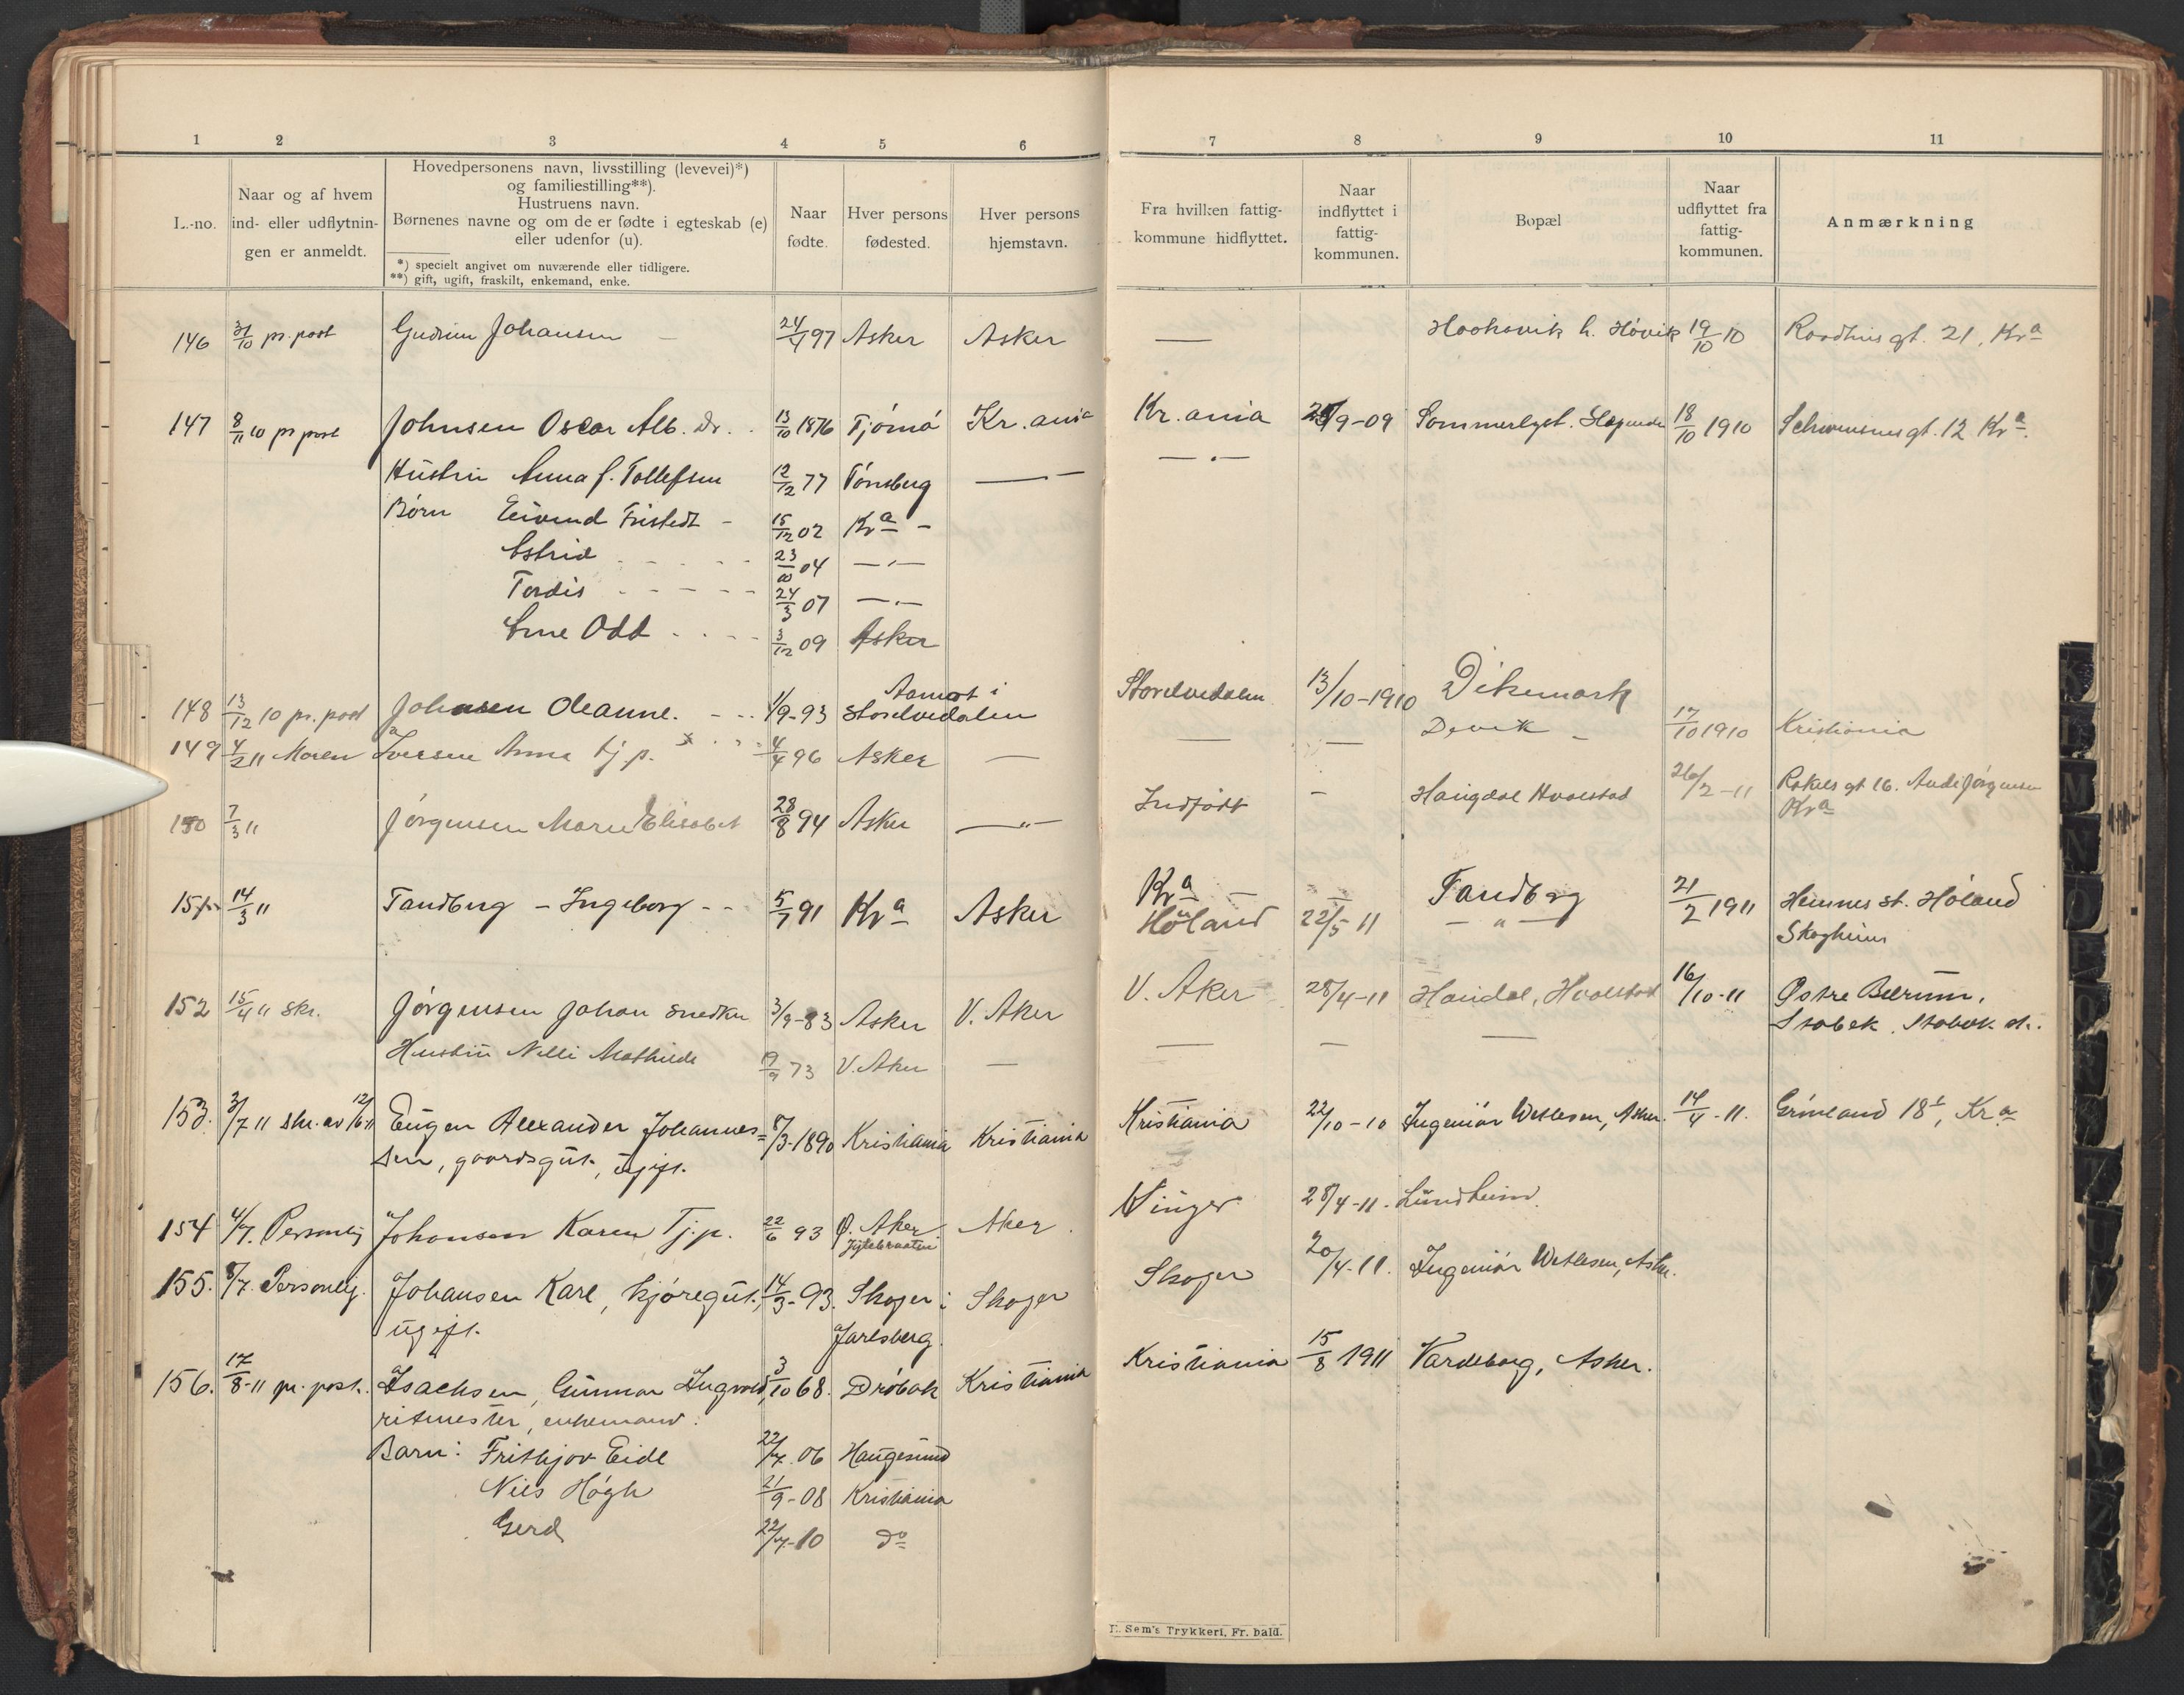 1 2 3 4 5 6 7 8 9 10 11
L.-no.
Naar og af hvem ind- eller udflytningen er anmeldt.
Hovedpersonens navn, livsstilling (levevei)*) og familiestilling**).
Hustruens navn.
Børnenes navne og om de er fødte i egteskab (e) eller udenfor (u).
*) specielt angivet om nuværende eller tidligere.
**) gift, ugift, fraskilt, enkemand, enke.
Naar fødte.
Hver persons fødested.
Hver persons hjemstavn.
Fra hvilken fattigkommune hidflyttet.
Naar indflyttet i fattigkommunen.
Bopæl
Naar udflyttet fra fattigkommunen.
Anmærkning
146 31/10 pr. post Gudrun Johansen 24/4 97 Asker Asker — h. Høvik 19/10 10 Raadhusgt. 21, Kra
147 8/11 10 pr post Johnsen Oscar Alb. Dr. 13/10 1876 Tjømø Kr.ania Kr.ania 9-09 Sommerlyst. 18/10 1910 Schwensensgt. 12 Kra.
Hustru Anna f. Tollefsen 12/12 77 Tønsberg — —
Børn Eivind Fristedt - 15/12 02 Kra -
Astrid 23/10 04 —
Tordis 24/3 07 —
Arne Odd 3/12 09 Asker
148 13/12 10 pr. post Johansen Oleanne. 1/9-93 Aamot i Storelvedalen Storelvedalen 13/10-1910 Dikemark
149 4/2 11 Moren Iversen Anna tj.p. 4/4 96 Asker — — — 17/10 1910 Kristiania
150 7/3 11 Jørgensen Marie Elisabet 28/8 94 Asker —"— Indfødt - Haugdal Hvalstad 26/2-11 Rakels gt 16. Jørgensen Kra
151 14/3 11 Tandberg - Ingeborg 5/7 91 Kra Asker Kra — Tandberg 21/2 1911 Hemnes st. Høland
Høland 22/5 11 —"— Skogheim
152 15/4 11 skr. Jørgensen Johan snedker 3/9-83 Asker V. Aker V. Aker 28/4-11 Hvalstad 16/10-11 Østre Bærum, Stabek. Stabek st.
Hustru Nelli Mathilde 19/9 73 V. Aker — — — —
153. 3/7 11 skr. av 12/6 11 Eugen Alexander Johannes= 8/3-1890 Kristiania Kristiania Kristiania 22/10-10 Ingeniør Wetlesen, Asker. 14/4-11. Grønland 18, Kra
sen, gaardsgut, ugift.
154 4/7. Personlig Johansen Karen Tj.p. 22/6 93 Ø. Aker Aker. Vinger 28/4-11. Lundheim
155. 8/7. Personlig. Johansen Karl, kjøregut, 14/3-93. Skoger i Skoger Skoger 20/4-11. Ingeniør Wetlesen, Asker.
ugift. Jarlsberg.
156. 17/8-11 pr. post. Isachsen, Gunnar Ingvald, 3/10 68. Drøbak Kristiania Kristiania 15/8 1911 Vardeborg, Asker.
ritmester, enkemand.
Barn: Frithjov Eide 22/7. 06 Haugesund
Nils Høgh 21/9-08 Kristiania
Gerd 22/7-10 do
E. Sem's Trykkeri, Fr. hald.